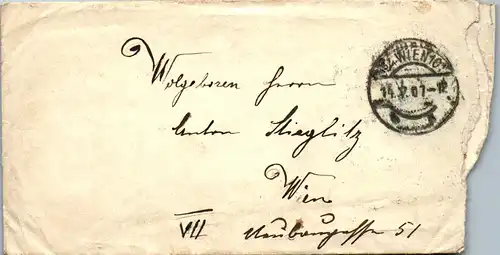 Wolgeboren Herrn
Anton Stieglitz
Wien
VII Neubaugasse 51
WIEN